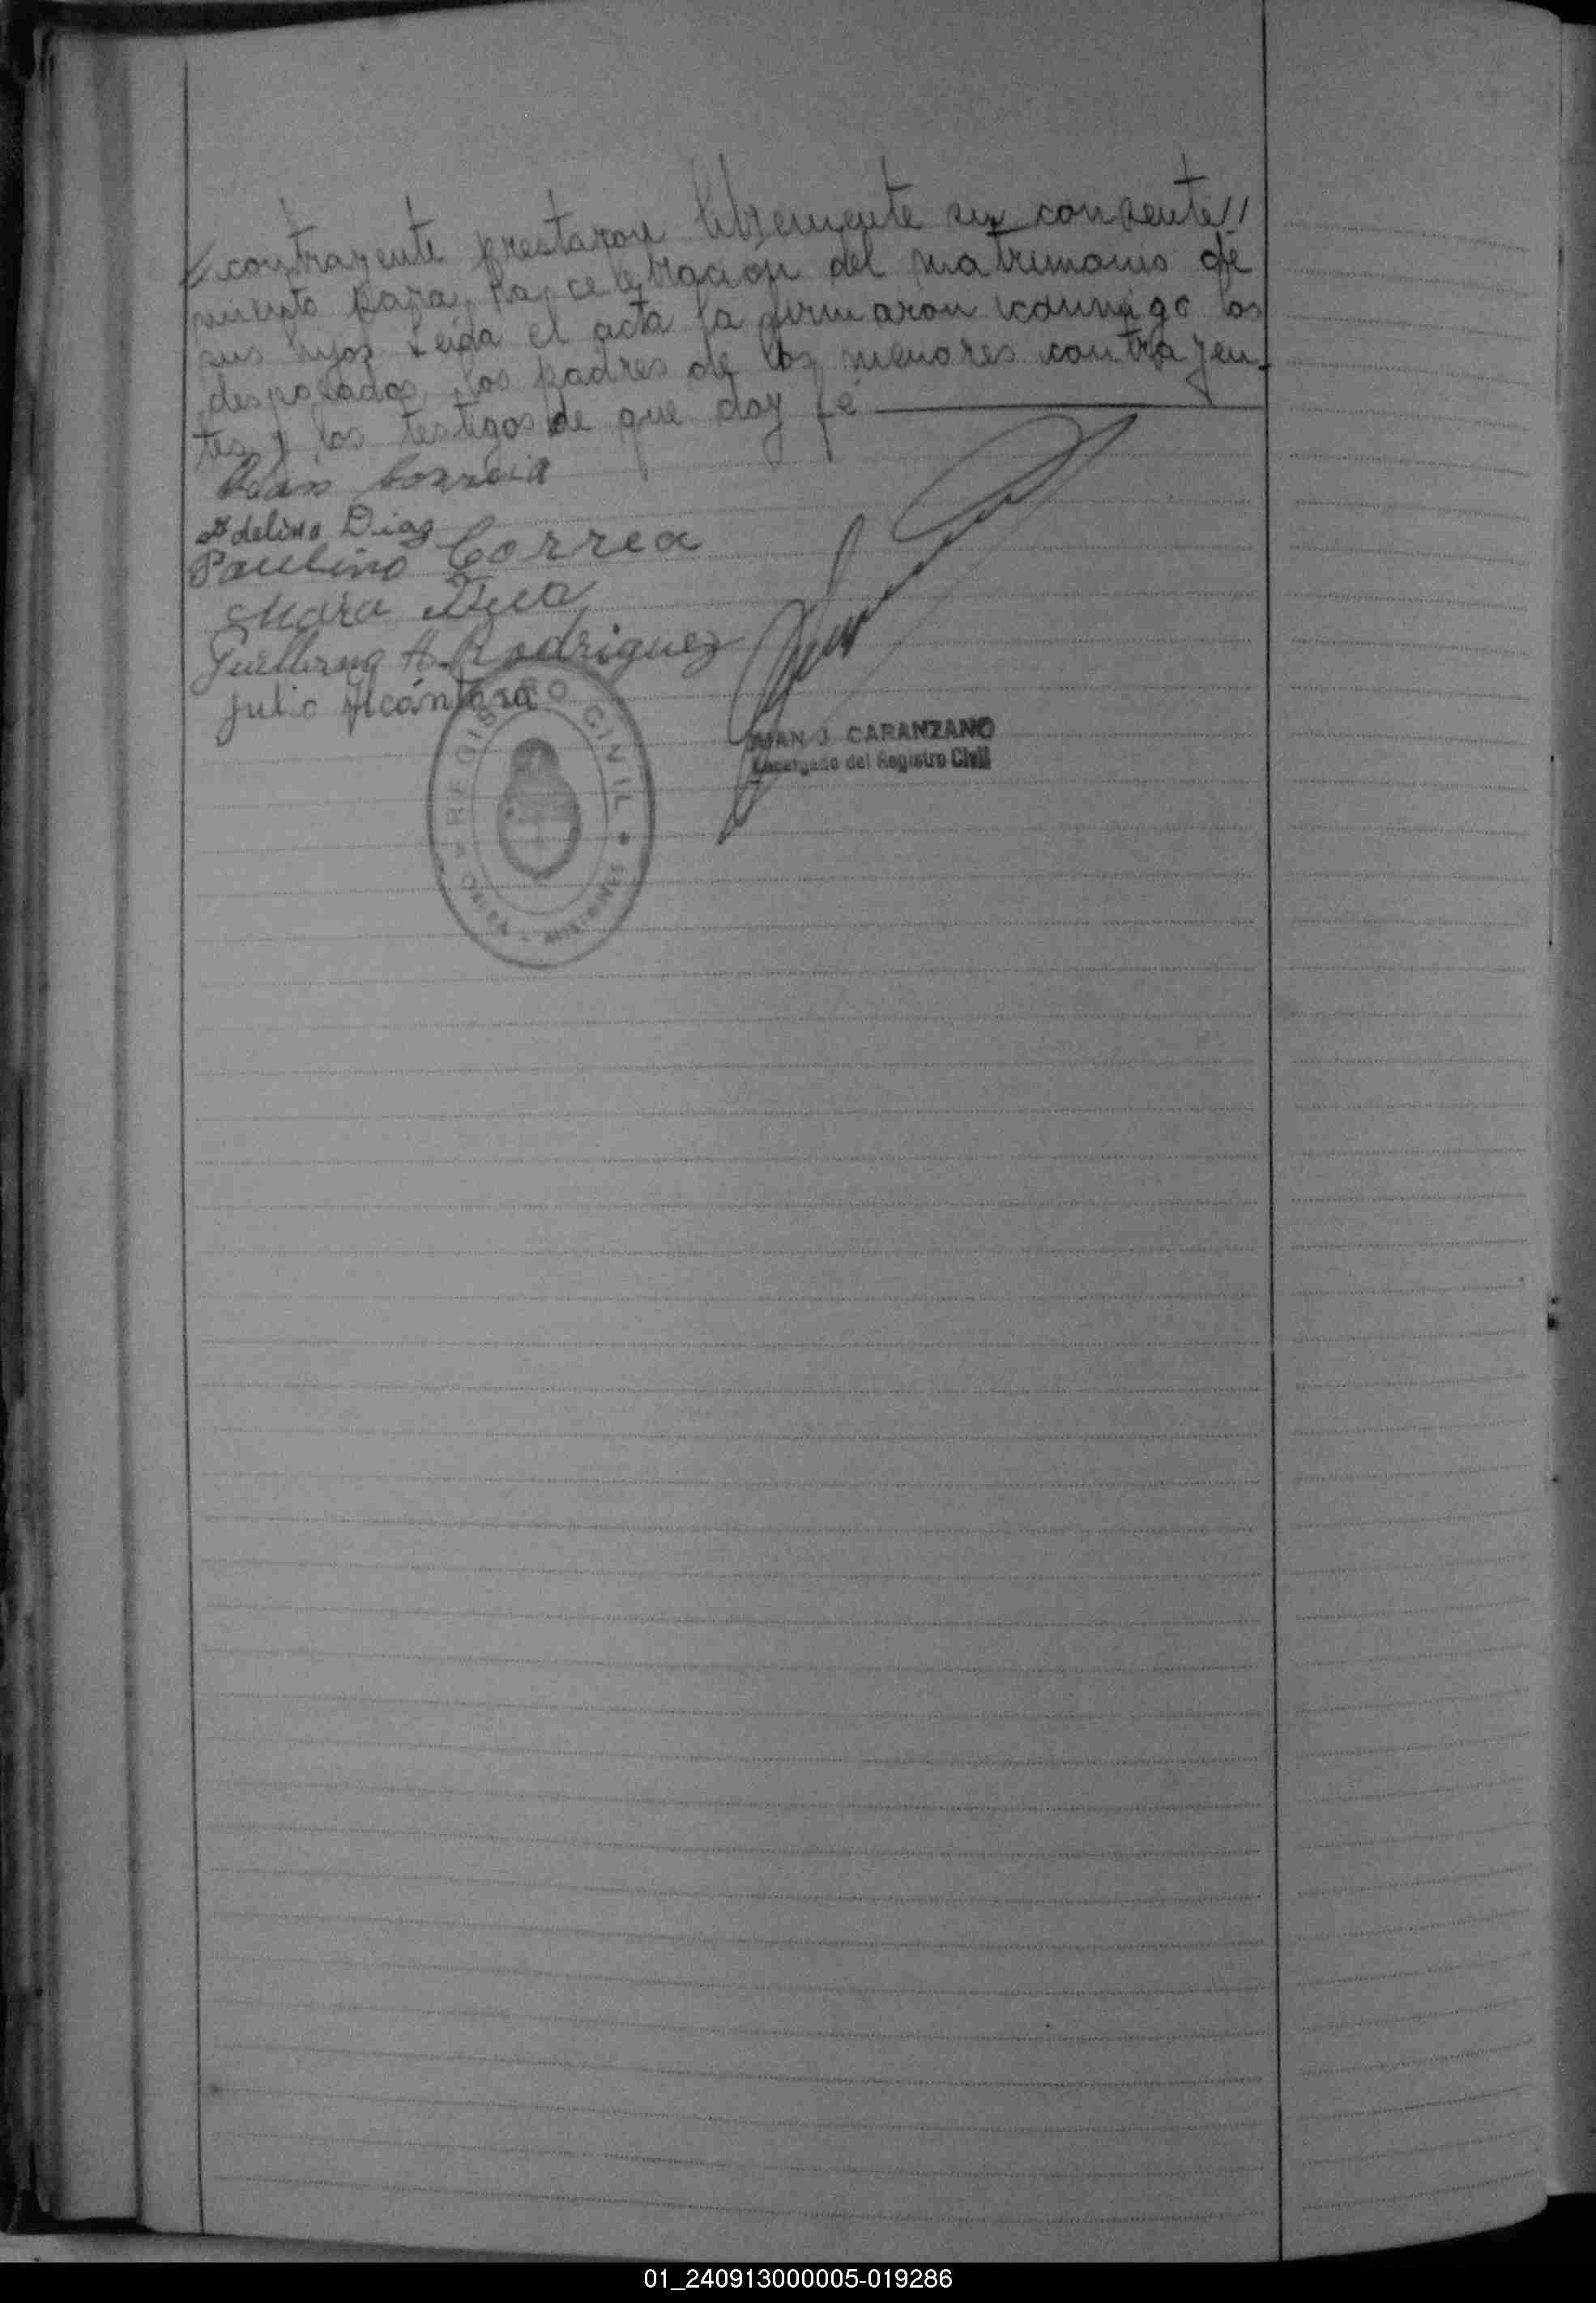 // contrayente prestaron libremente su consenti//
miento para la celebracion del matrimonio de
sus hijos Leida el acta la firmaron conmigo los
desposados, los padres de los menores contrayen-
tes y los testigos de que doy fé
Correia
Adelina Diaz
Paulino Correa
Guillermo A. Rodriguez
Julio Alcántara
REGISTRO CIVIL
MISIONES
JUAN J. CARANZANO
Encargado del Registro Civil
01_240913000005-019286